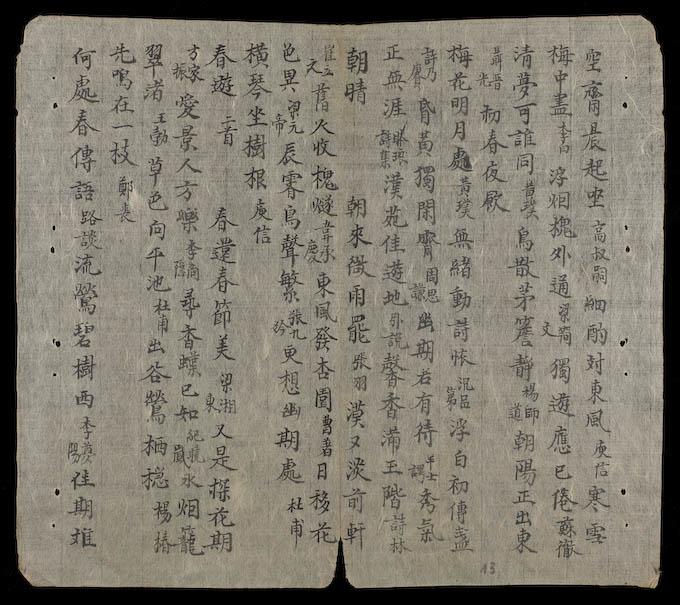 空齋晨起坐高叔嗣細酌対東風庾信寒雪
梅中盡李白浮烟槐外通梁簡文獨遊應已倦蘇徹
清夢可誰同黄璞鳥散茅簷静楊師道朝陽正出東
聶晋光初春夜歇
梅花明月處黄璞無緒動詩懐浮白初傳盞
昏黄獨閑齋周思謙幽期若有待秀氣
正無涯詩集漢苑佳遊地馨香滿玉階詩林
朝晴 朝來微雨罷張羽漠又淡前軒
崔立元舊火收槐燧韋承慶東風發杏園曹著日移花
色異梁元帝辰霽鳥聲繁張九更想幽期處杜甫
橫琴坐樹根庾信
春遊 二首 春還春節美梁湘東又是探花期
方家振愛景人方樂李商隱尋香蝶已如氷烟籠
翠渚王勃草色向平池杜甫出谷鶯栖穏楊椿
先鳴在一枝鄭
何處春傳語路談流鶯碧樹西李佳期難
13